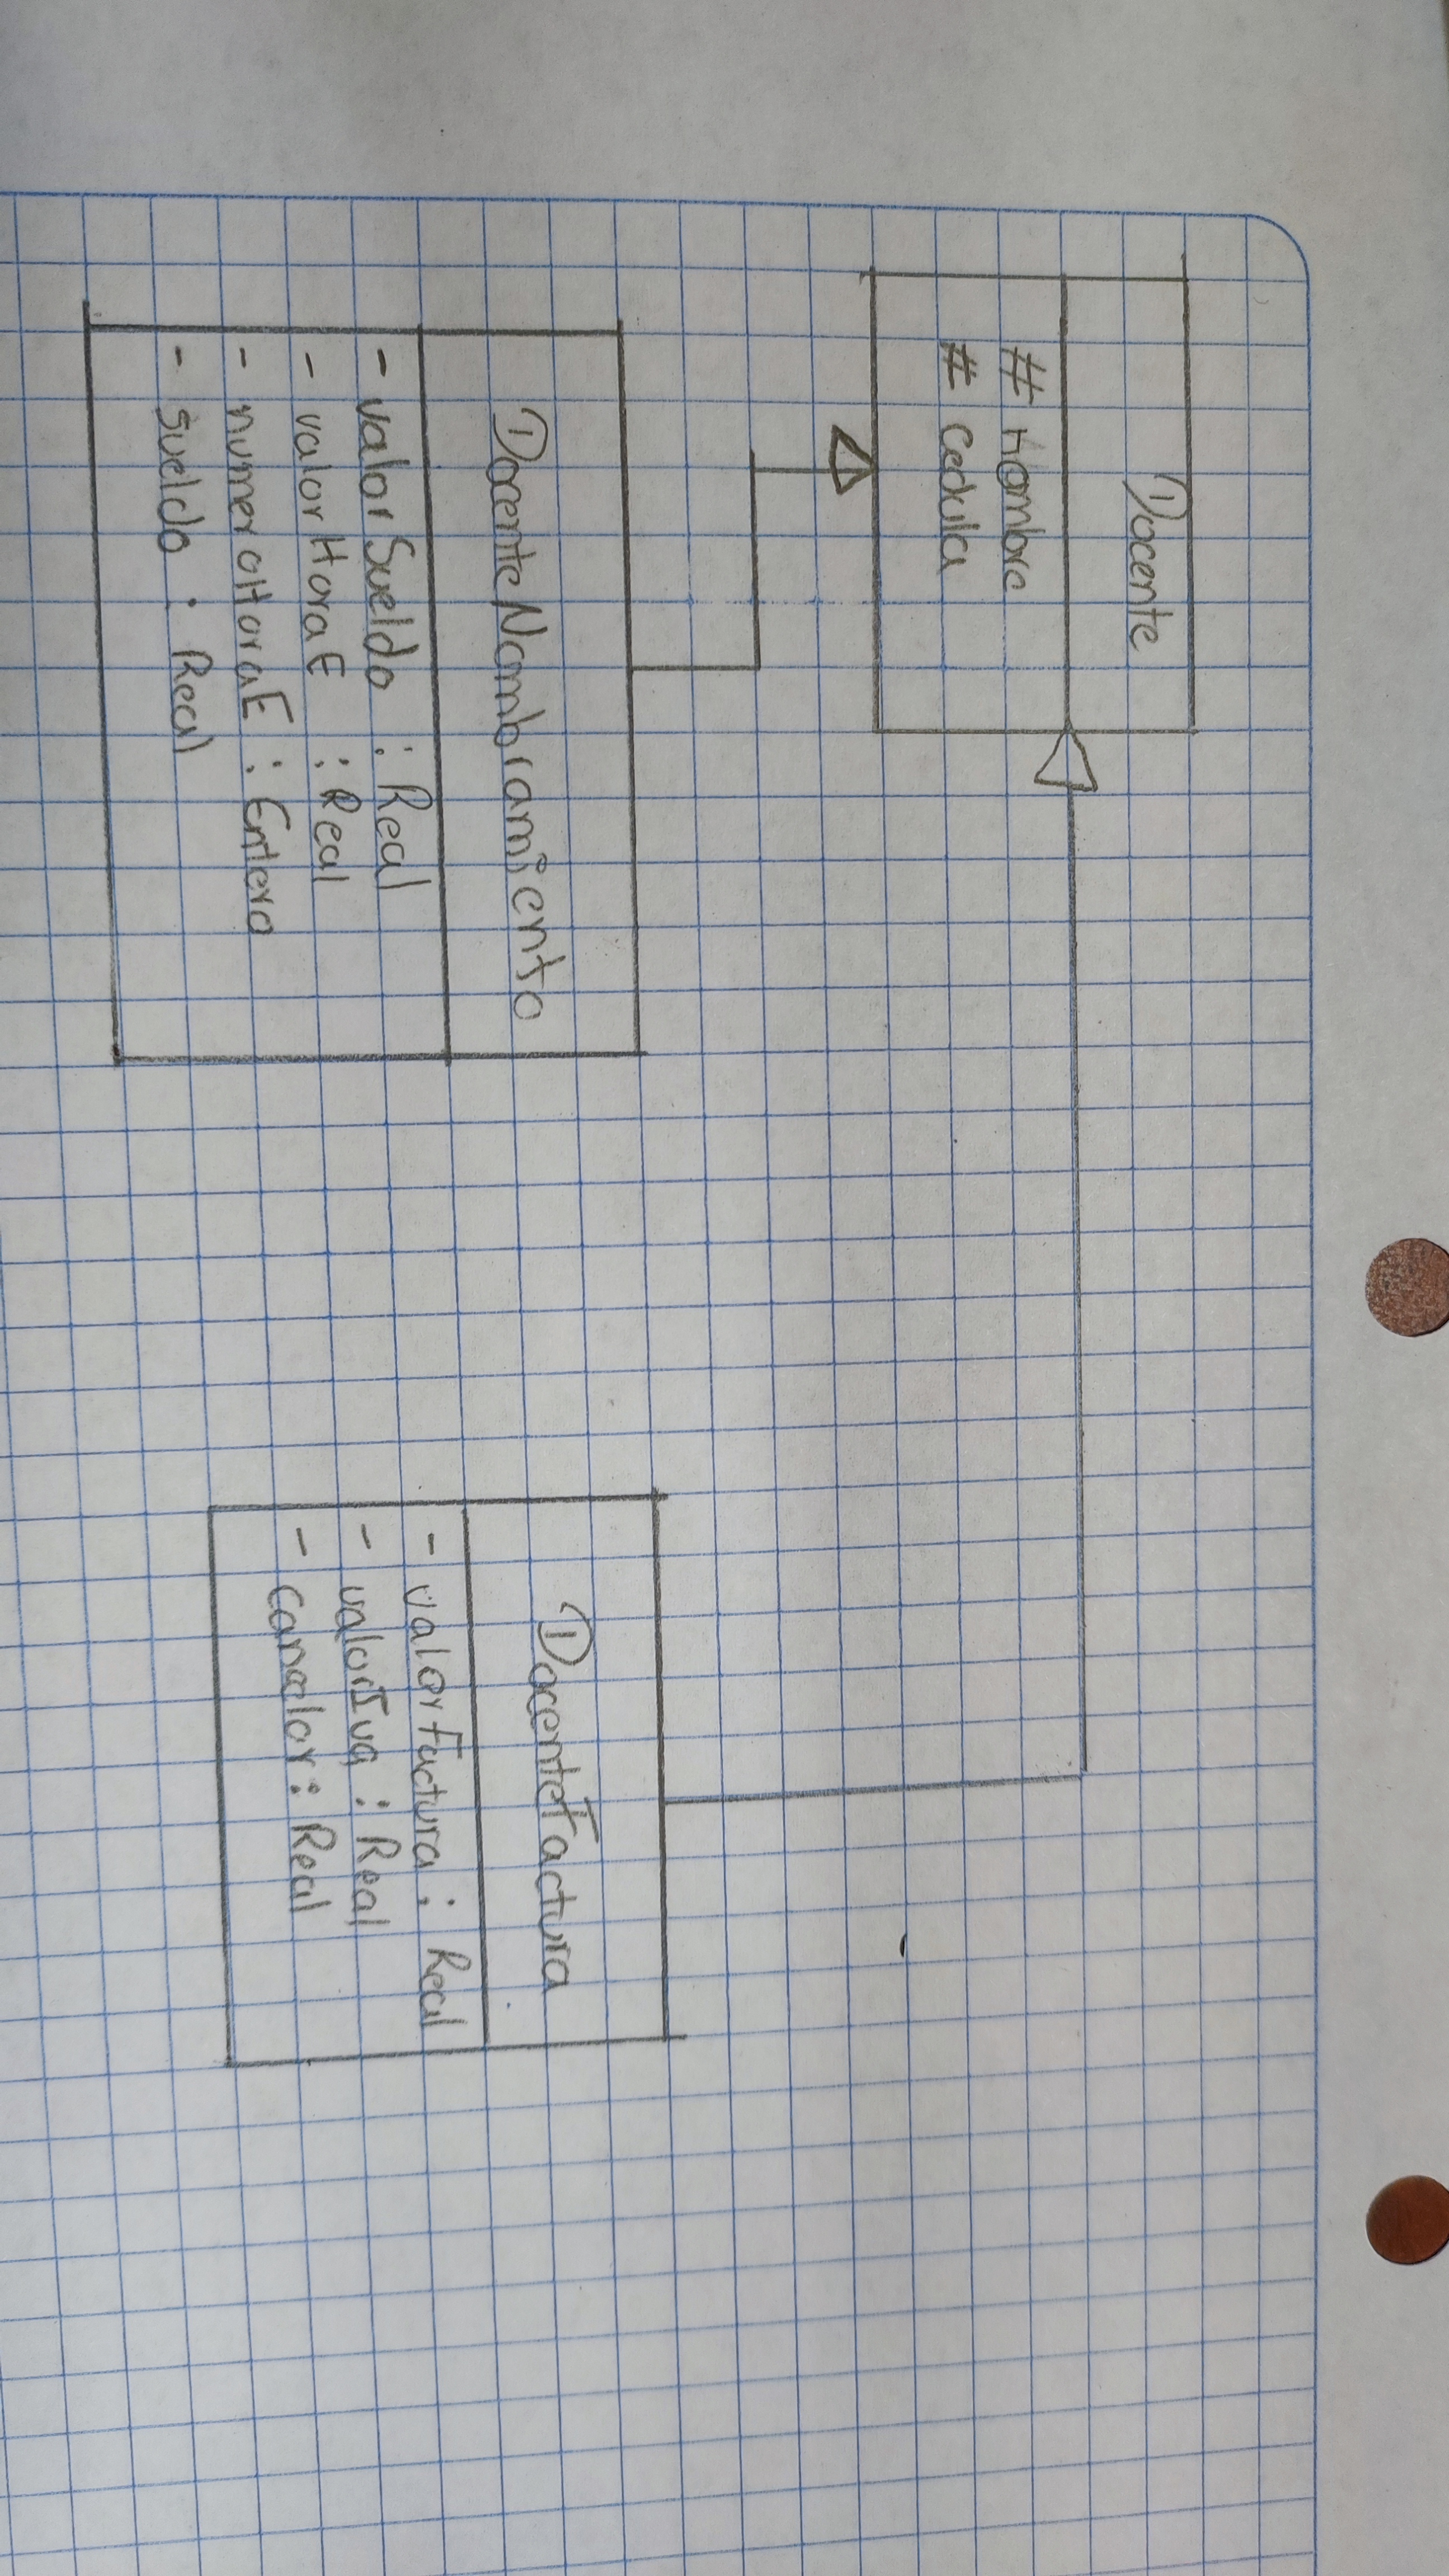 Docente
# nombre
# cedula
DocenteNombramiento
- valorSueldo : Real
- valorHoraE : Real
- numeroHoraE : Entero
- sueldo : Real
DocenteFactura
- valorFactura : Real
- valorIva : Real
: Real